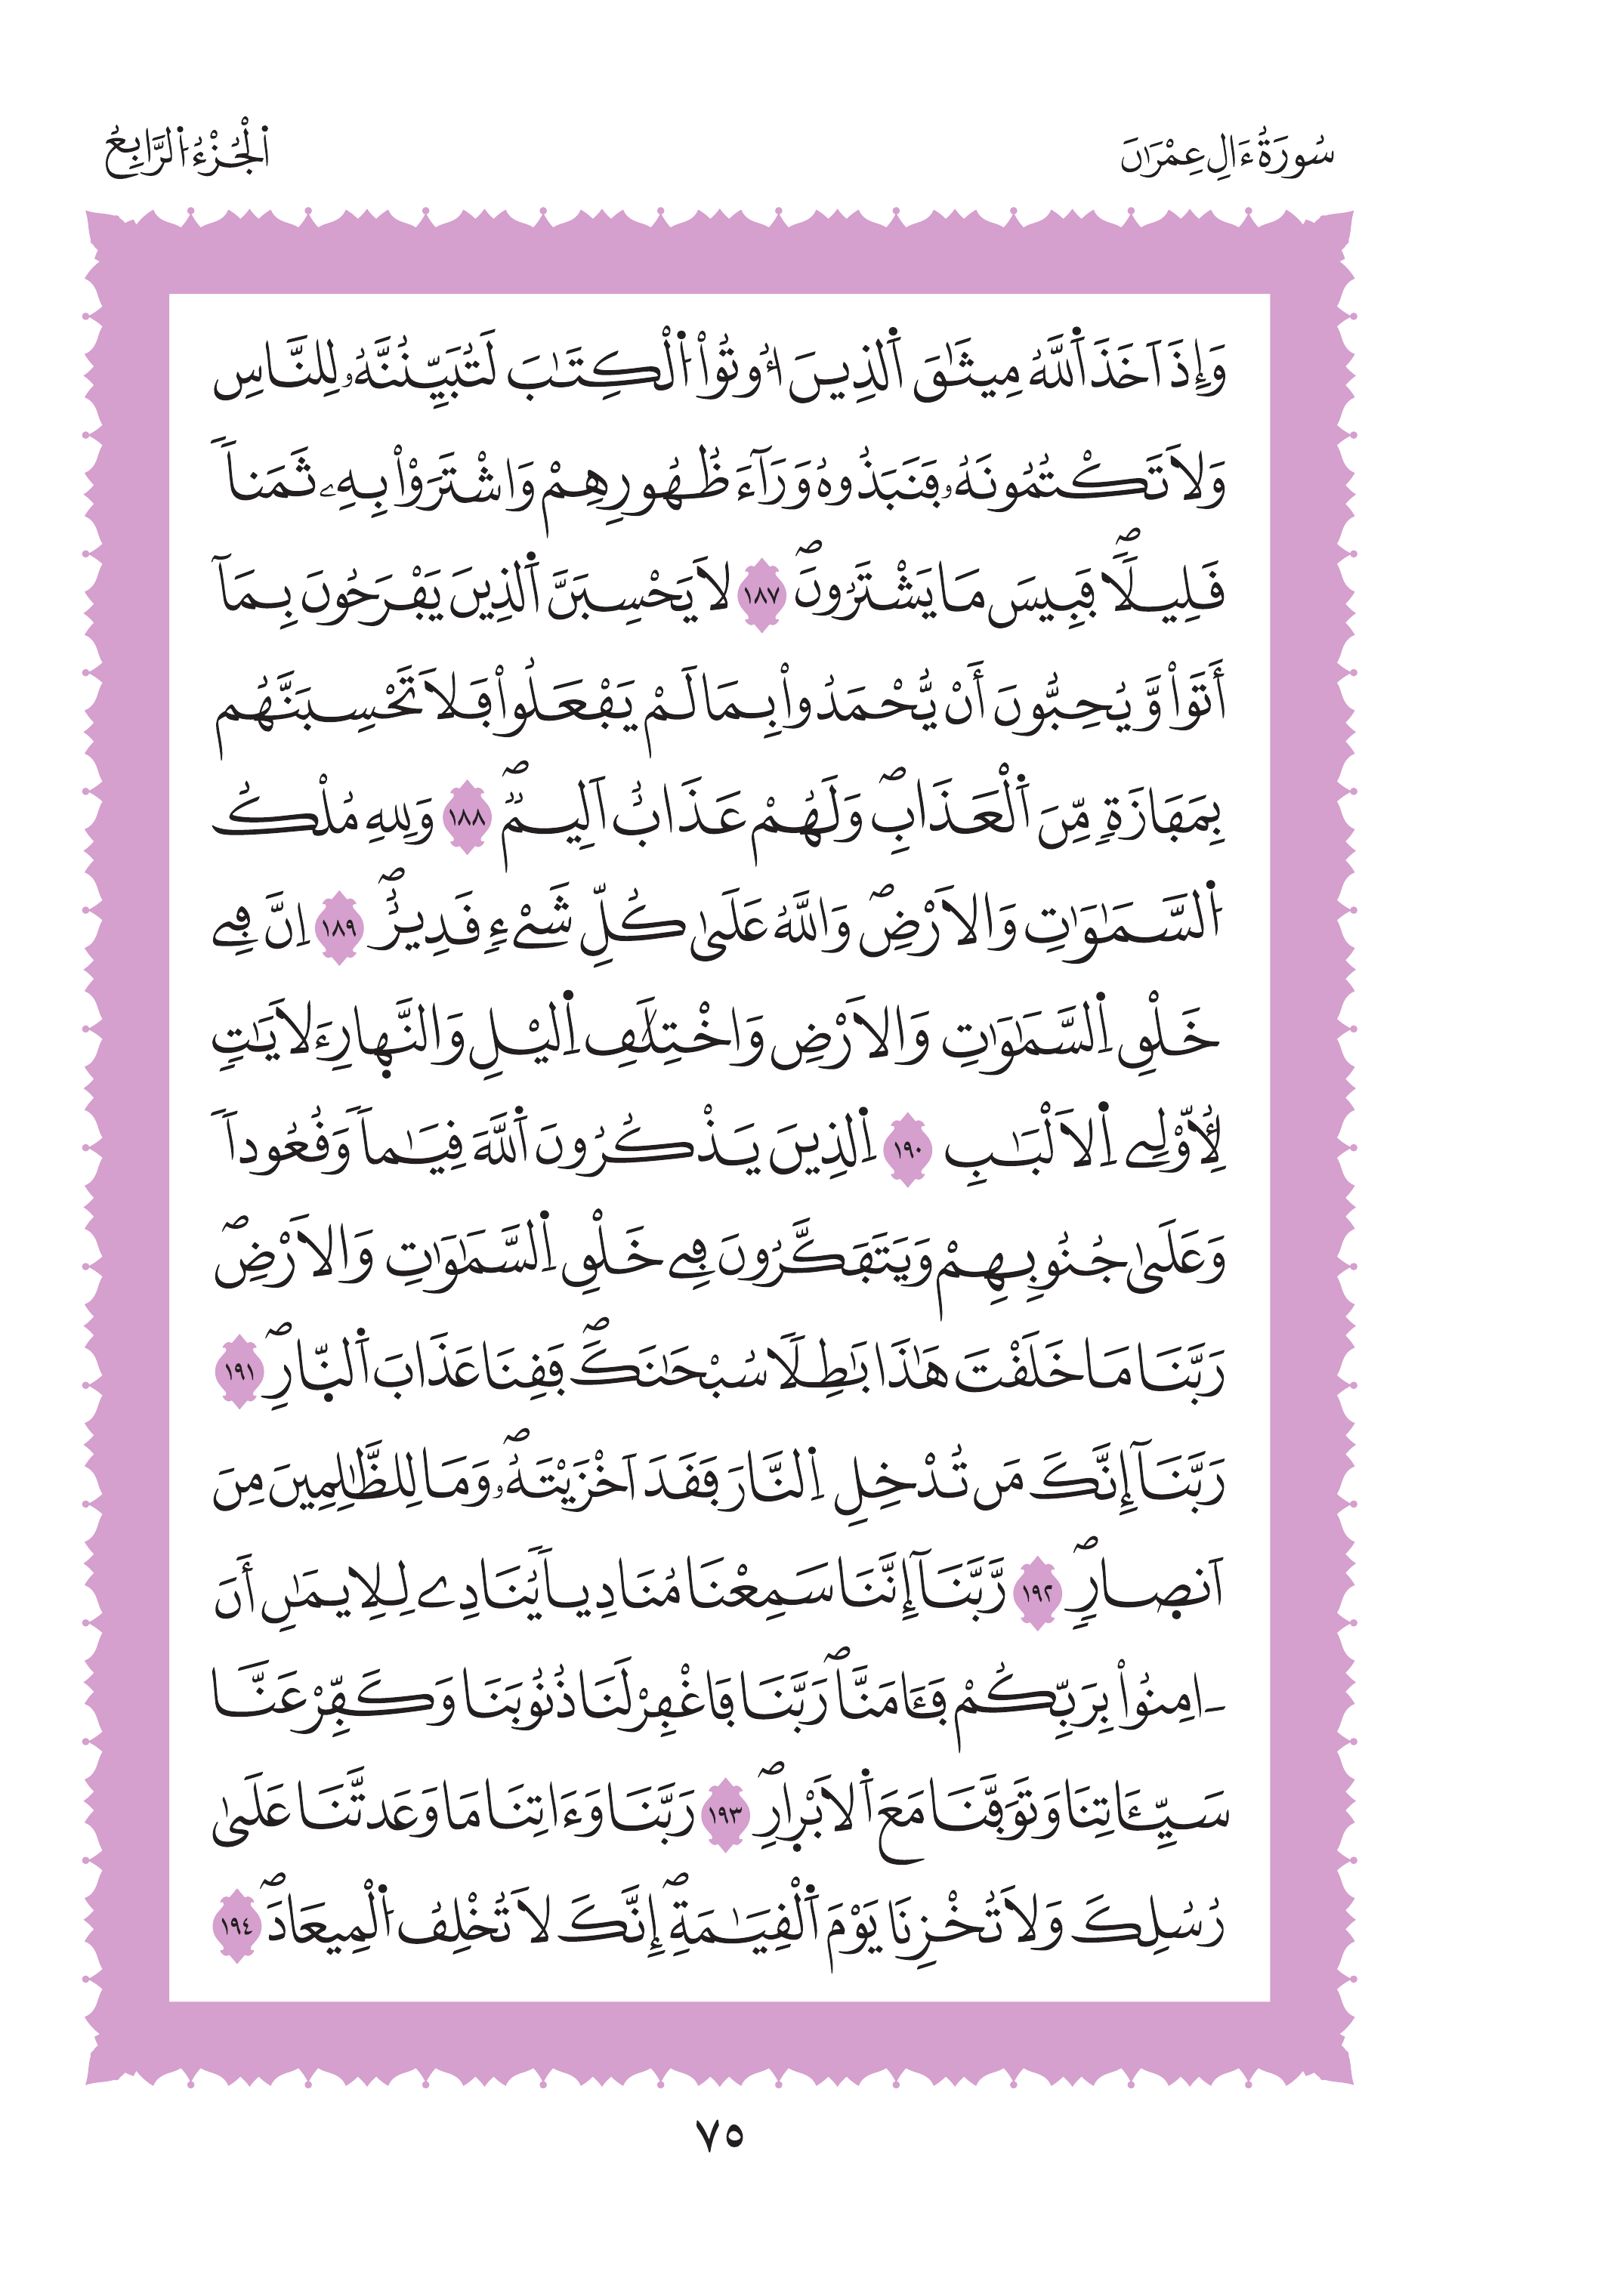 سُورَةُ ءَالِ عِمْرَٰنَ
اَ۬لْجُزْءُ اُ۬لرَّابِعُ
وَإِذَ اَخَذَ اَ۬للَّهُ مِيثَٰقَ اَ۬لذِينَ أُوتُواْ اُ۬لْكِتَٰبَ لَتُبَيِّنُنَّهُۥ لِلنَّاسِ
وَلَا تَكْتُمُونَهُۥ فَنَبَذُوهُ وَرَآءَ ظُهُورِهِمْ وَاشْتَرَوْاْ بِهِۦ ثَمَناٗ
قَلِيلاٗۖ فَبِيسَ مَا يَشْتَرُونَۖ ١٨٧ لَا يَحْسِبَنَّ اَ۬لذِينَ يَفْرَحُونَ بِمَآ
أَتَواْ وَّيُحِبُّونَ أَنْ يُّحْمَدُواْ بِمَا لَمْ يَفْعَلُواْ فَلَا تَحْسِبَنَّهُم
بِمَفَازَةٖ مِّنَ اَ۬لْعَذَابِۖ وَلَهُمْ عَذَابٌ اَلِيمٞۖ ١٨٨ وَلِلهِ مُلْكُ
اُ۬لسَّمَٰوَٰتِ وَالَارْضِۖ وَاللَّهُ عَلَىٰ كُلِّ شَےْءٖ قَدِيرٌۖ ١٨٩ اِنَّ فِے
خَلْقِ اِ۬لسَّمَٰوَٰتِ وَالَارْضِ وَاخْتِلَٰفِ اِ۬ليْلِ وَالنَّه۪ارِ ءَلَايَٰتٖ
لِّأُوْلِے اِ۬لَالْبَٰبِ ١٩٠ اِ۬لذِينَ يَذْكُرُونَ اَ۬للَّهَ قِيَٰماٗ وَقُعُوداٗ
وَعَلَىٰ جُنُوبِهِمْ وَيَتَفَكَّرُونَ فِے خَلْقِ اِ۬لسَّمَٰوَٰتِ وَالَارْضِۖ
رَبَّنَا مَا خَلَقْتَ هَٰذَا بَٰطِلاٗ سُبْحَٰنَكَۖ فَقِنَا عَذَابَ اَ۬لنّ۪ارِۖ ١٩١
رَبَّنَآ إِنَّكَ مَن تُدْخِلِ اِ۬لنَّارَ فَقَدَ اَخْزَيْتَهُۥۖ وَمَا لِلظَّٰلِمِينَ مِنَ
اَنص۪ارٖۖ ١٩٢ رَّبَّنَآ إِنَّنَا سَمِعْنَا مُنَادِياٗ يُنَادِے لِلِايمَٰنِ أَنَ
ـ اٰمِنُواْ بِرَبِّكُمْ فَـَٔامَنَّاۖ رَبَّنَا فَاغْفِرْ لَنَا ذُنُوبَنَا وَكَفِّرْ عَنَّا
سَيِّـَٔاتِنَا وَتَوَفَّنَا مَعَ اَ۬لَابْر۪ارِۖ ١٩٣ رَبَّنَا وَءَاتِنَا مَا وَعَدتَّنَا عَلَىٰ
رُسُلِكَ وَلَا تُخْزِنَا يَوْمَ اَ۬لْقِيَٰمَةِۖ إِنَّكَ لَا تُخْلِفُ اُ۬لْمِيعَادَۖ ١٩٤
٧٥